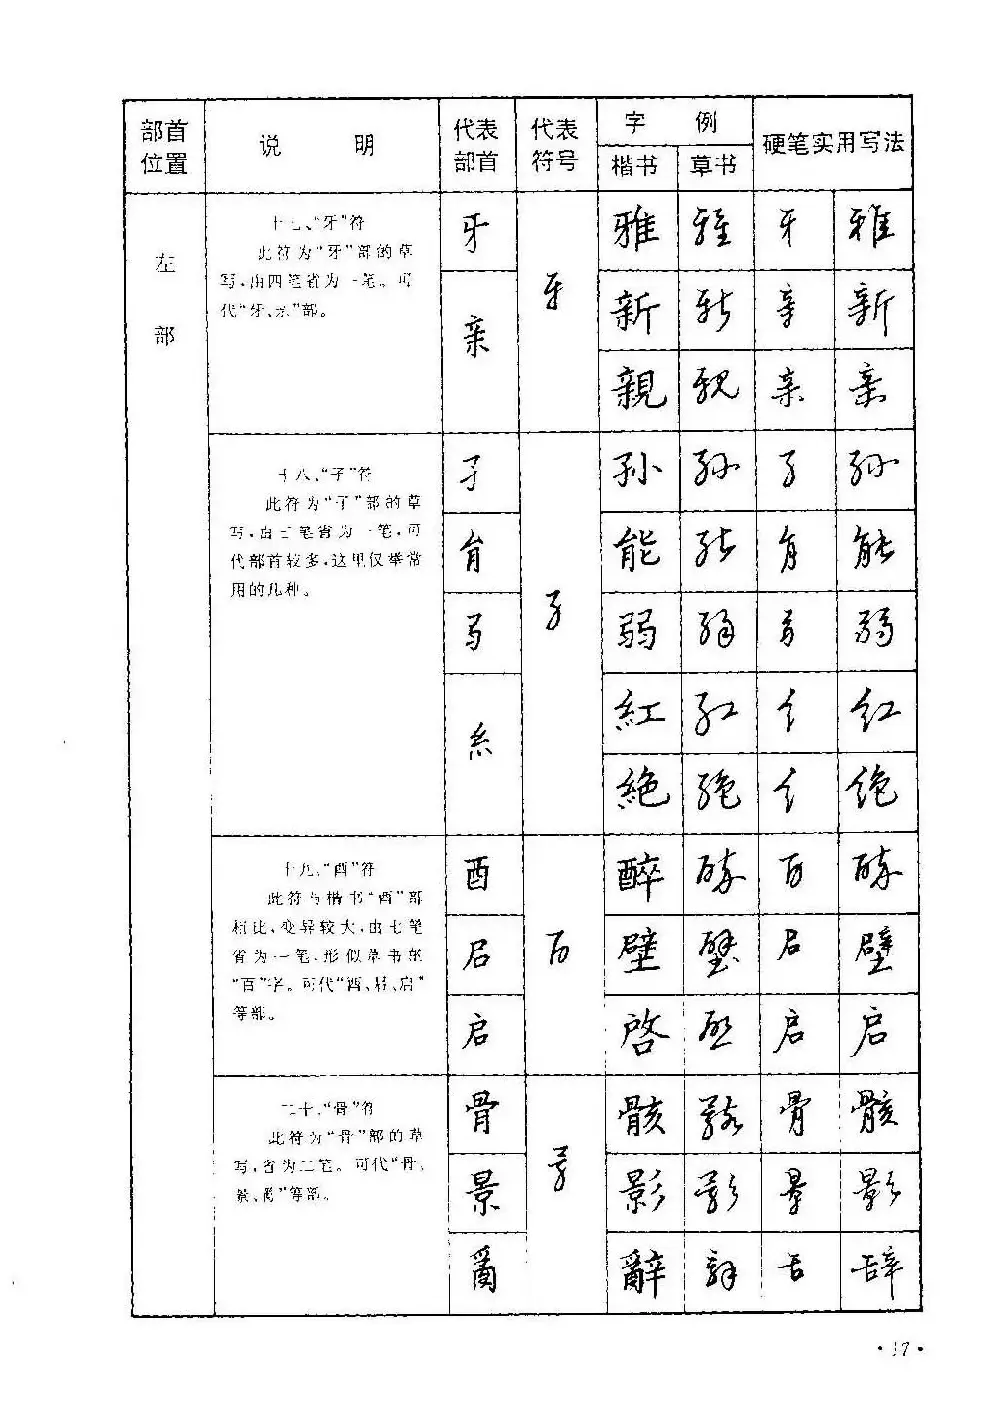 部首位置 说 明 代表部首 代表符号 字 例 硬笔实用写法
楷书 草书
左部
十七、“牙”符
此符为“牙”部的草
写,由四笔省为一笔。可
代“牙、亲”部。
牙 雅 雅 牙 雅
亲 新 新 亲 新
親 親 亲 亲
十八、“子”符
此符为“子”部的草
写,由三笔省为一笔,可
代部首较多,这里仅举常
用的几种。
子 孙 孙 子 孙
能 能 能
弱 弱 弱
糹 紅 红 纟 红
絶 绝 纟 绝
十九、“酉”符
此符与楷书“酉”部
相比,变异较大,由七笔
省为一笔,形似草书的
“百”字。可代“酉、𠯑、启”
等部。
酉 醉 醉 酉 醉
壁 壁 壁
启 啓 启 启 启
二十、“骨”符
此符为“骨”部的草
写,省为二笔。可代“骨、
景、𤔔”等部。
骨 骸 骸 骨 骸
景 影 影 景 影
𤔔 辭 辭 舌 辞
·17·